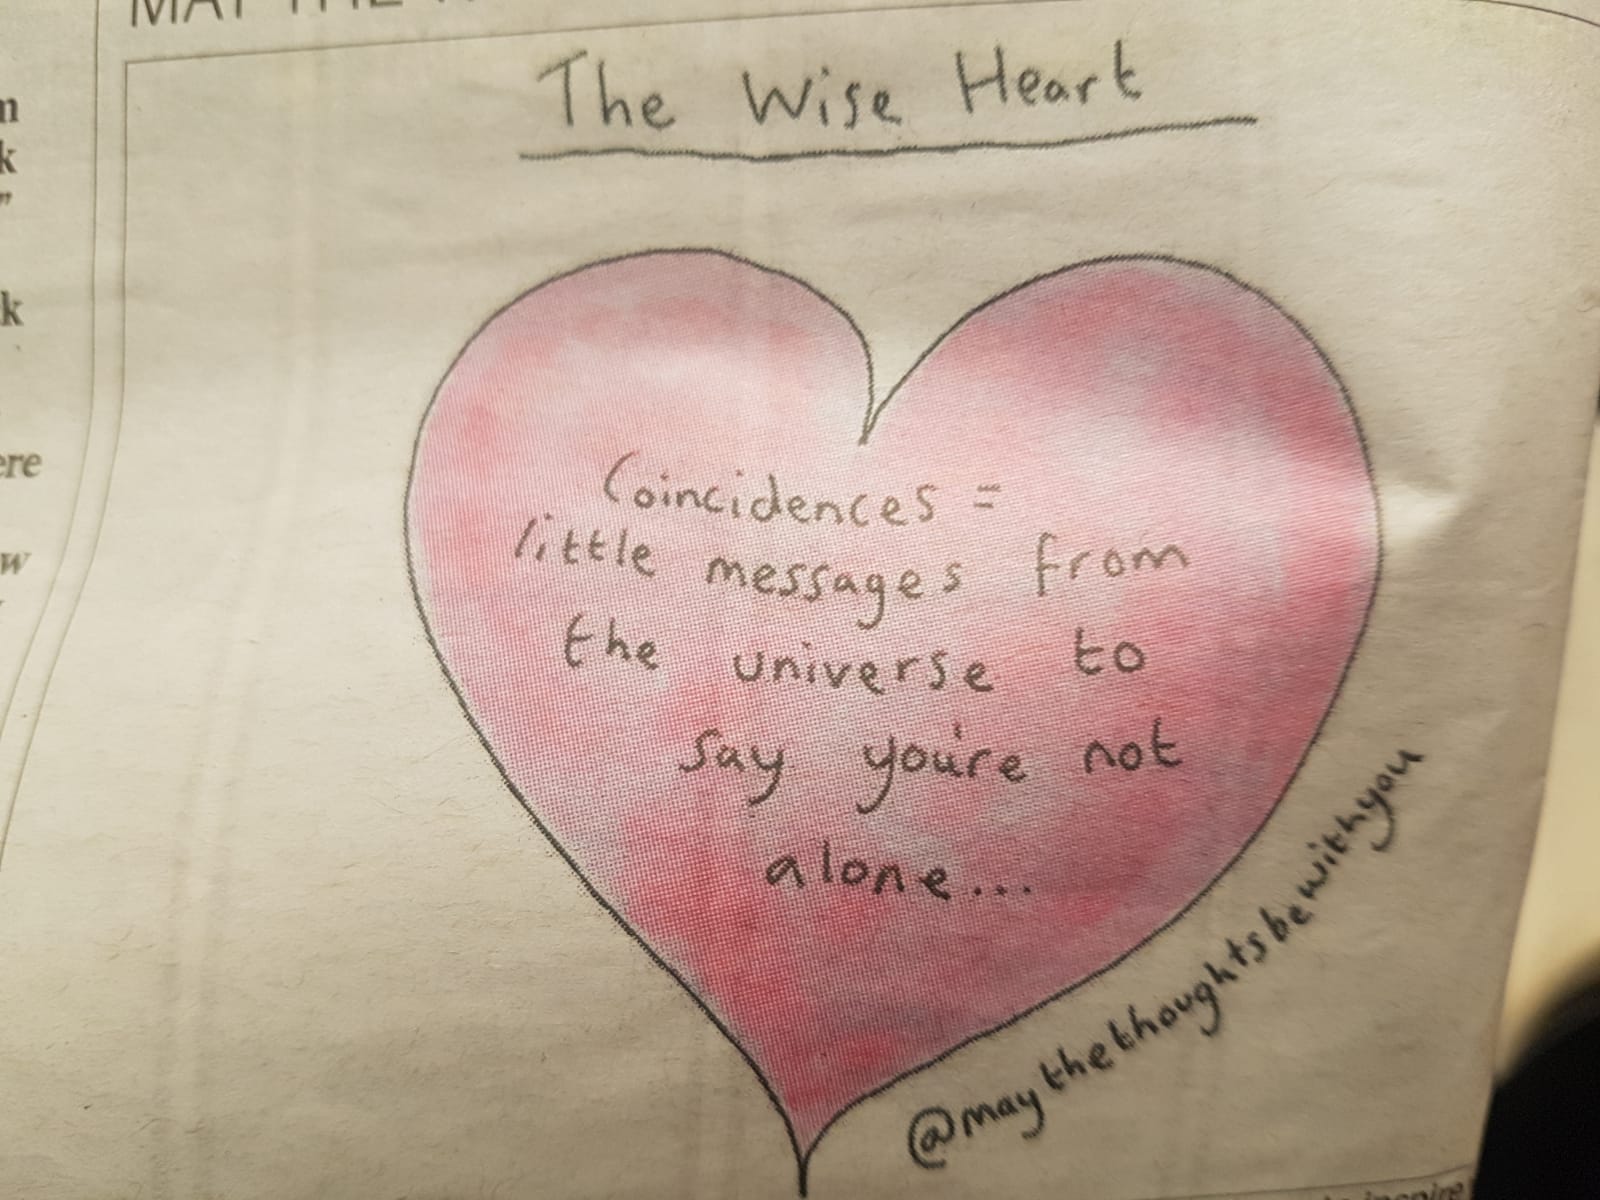 The Wise Heart
Coincidences =
little messages from
the universe to
say you're not
alone...
@maythethoughtsbewithyou
k
k
ere
w